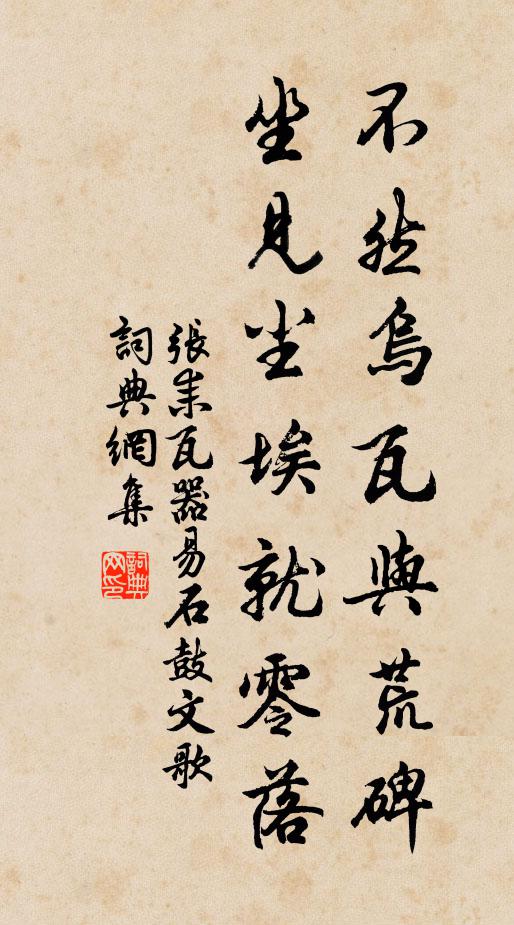 不然烏瓦與荒碑
坐見尘埃就零落
張耒瓦器易石鼓文歌
詞典網集
詞典
网印